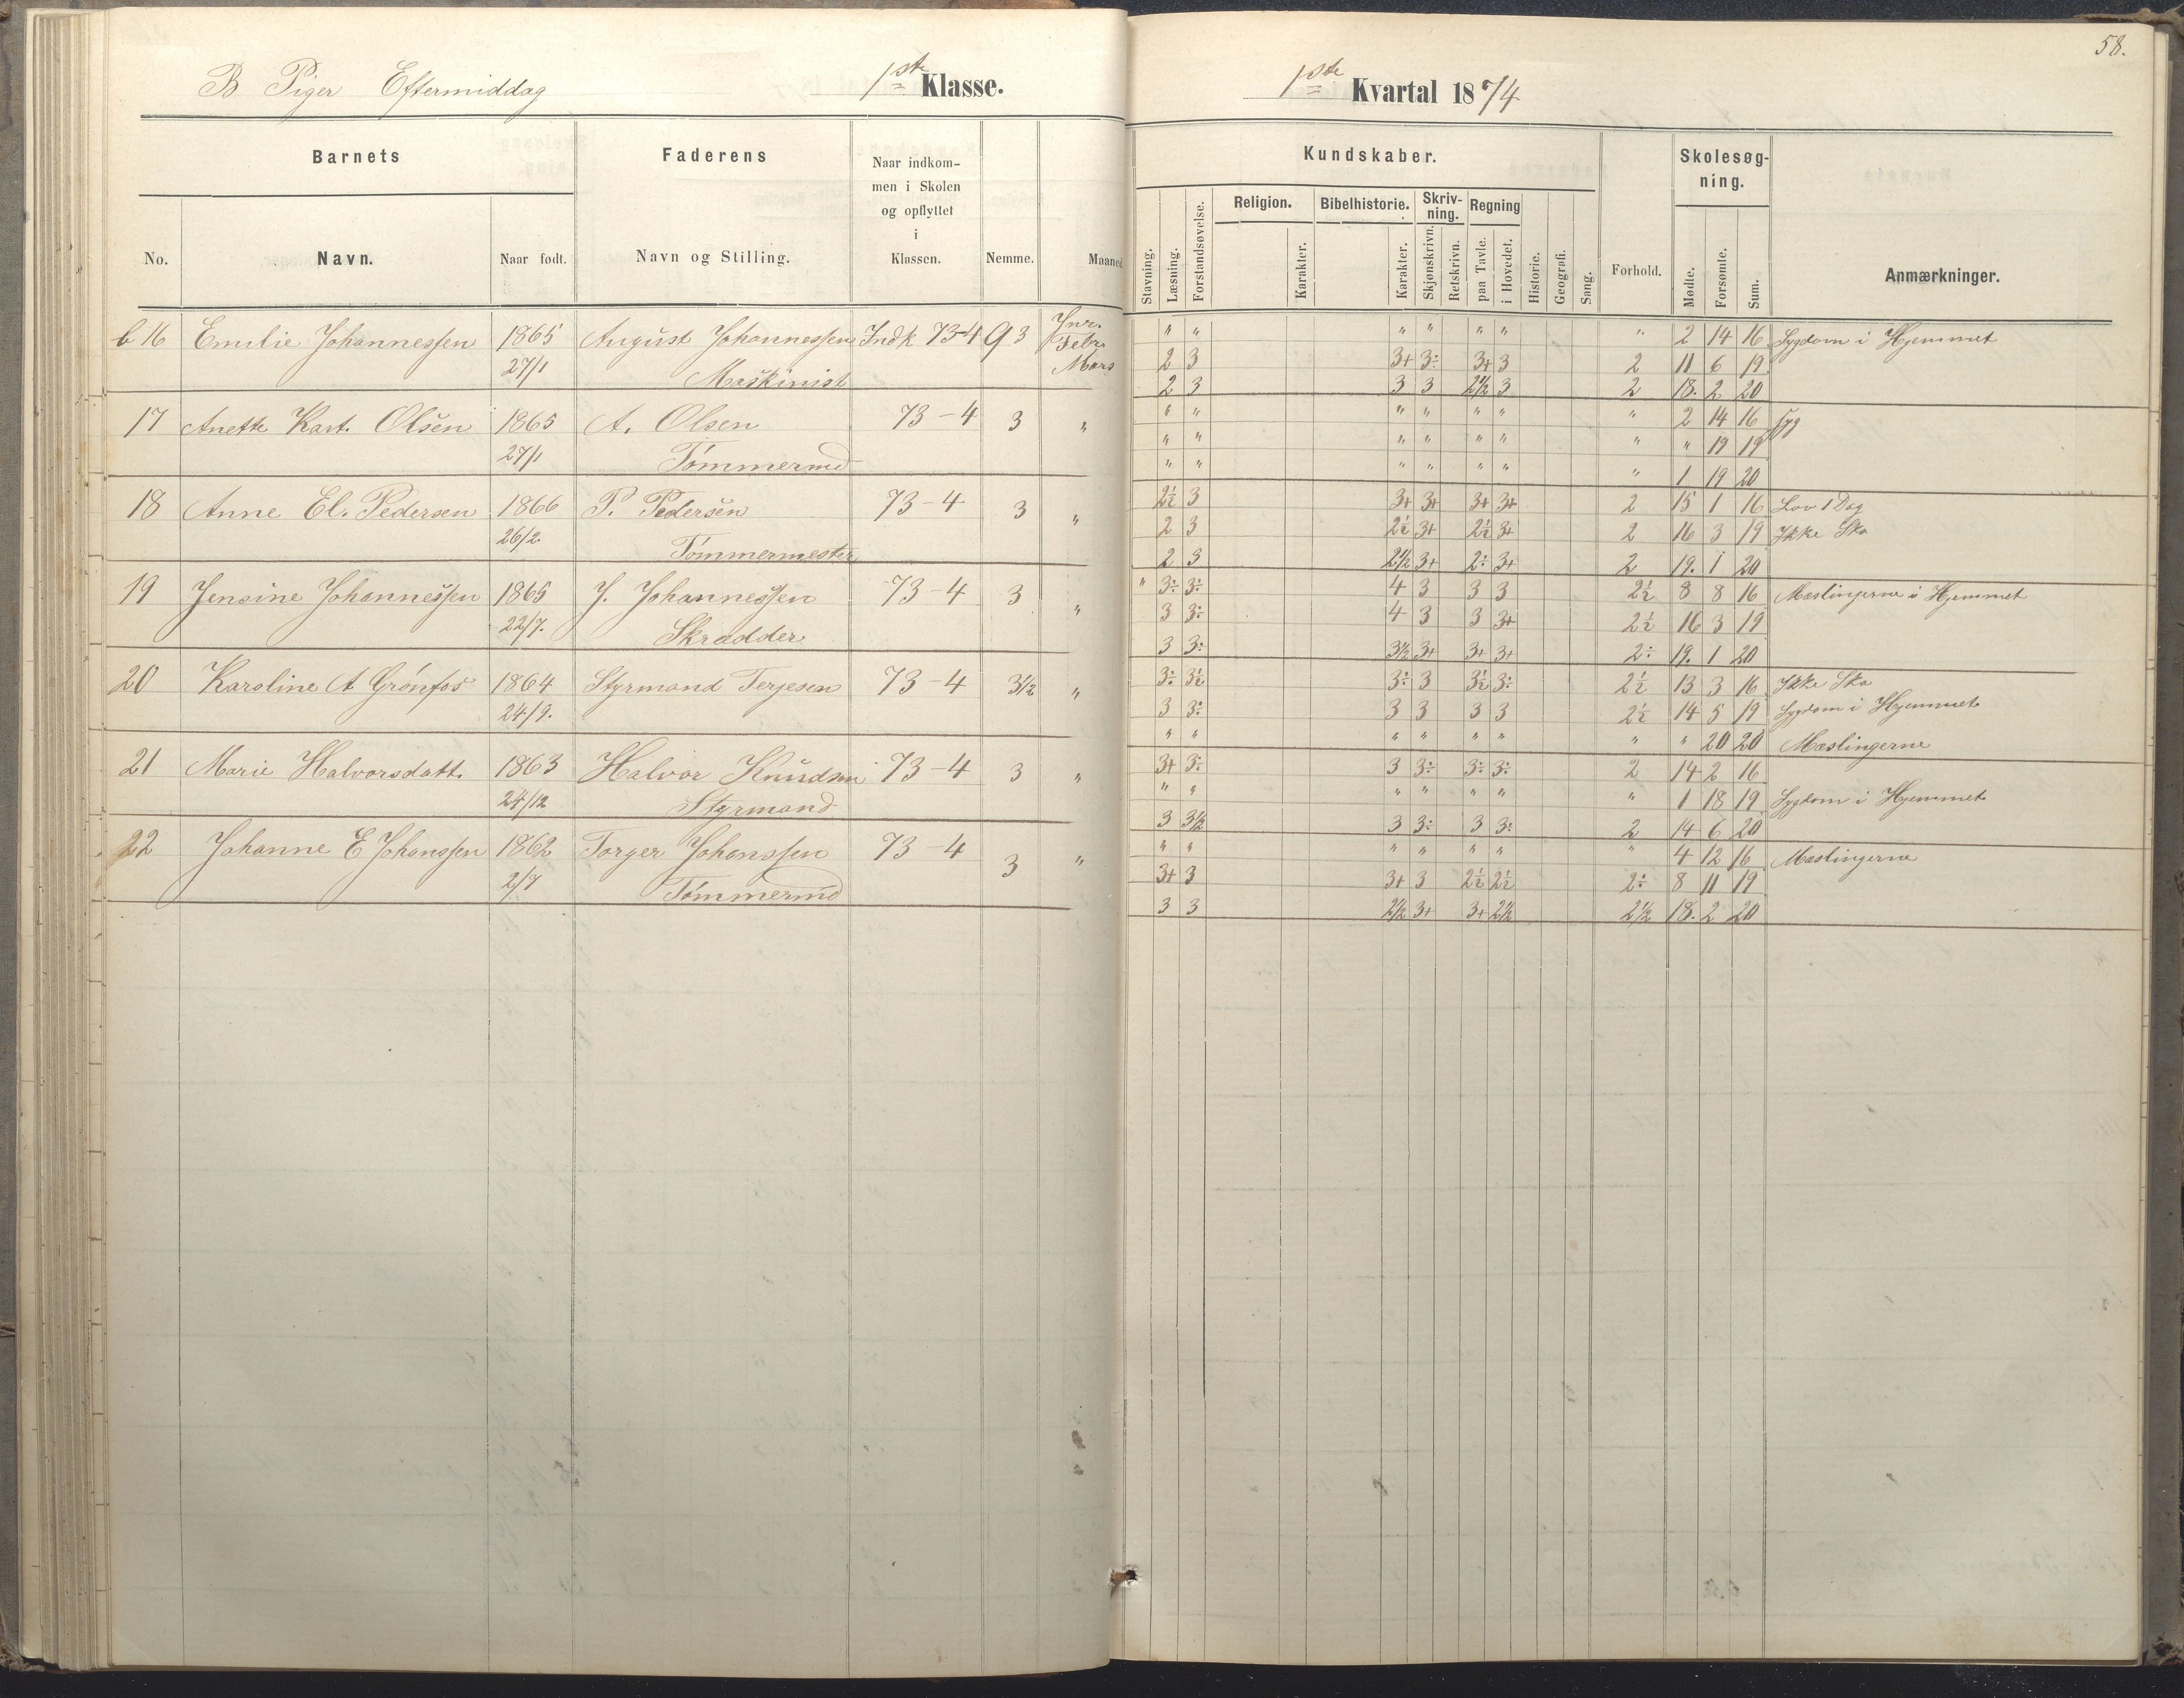 58.
B Piger Eftermiddag 1ste Klasse.
1ste Kvartal 1874
Barnets Faderens Naar indkom-
men i Skolen
og opflyttet
i
Klassen.
No. Navn. Naar født. Navn og Stilling. Nemme. Maaned
Kundskaber. Skolesøg-
ning.
Religion. Bibelhistorie. Skriv-
ning. Regning
Stavning. Læsning. Forstandsøvelse. Karakter. Karakter. Skjønskrivn. Retskrivn. paa Tavle. i Hovedet. Historie. Geografi. Sang. Forhold. Mødte. Forsømte. Sum. Anmærkninger.
16 Emilie Johannessen 1865 August Johannessen Indk 73-4 3 Jnr. " " " " " " " 2 14 16 Sygdom i Hjemmet
27/1 Maskinist Febr. 2 3 3+ 3÷ 3+ 3 2 11 6 19
Mars 2 3 3 3 2½ 3 2 18. 2 20
17 Anette Kast. Olsen 1865 A. Olsen 73-4 3 " " " " " " " " 2 14 16 Syg
27/1 Tømmermd " " " " " " " " 19 19
" " " " " " " 1 19 20
18 Anne El. Pedersen 1866 P. Pedersen 73-4 3 " 2½ 3 3+ 3+ 3+ 3+ 2 15 1 16 Lov 1 Dag
26/2. Tømmermester 2 3 2½ 3+ 2½ 3+ 2 16 3 19 Ikke Sko
2 3 2½ 3+ 2÷ 3+ 2 19. 1 20
19 Jensine Johannessen 1865 J. Johannessen 73-4 3 " " 3÷ 3÷ 4 3 3 3 2½ 8 8 16 Mæslingerne i Hjemmet
22/7. Skrædder 3 3÷ 4 3 3 3+ 2½ 16 3 19
3 3÷ 3½ 3+ 3+ 3+ 2÷ 19. 1 20
20 Karoline A Grønfos 1864 Styrmand Terjesen 73-4 3½ " 3÷ 3½ 3÷ 3 3½ 3÷ 2½ 13 3 16 Ikke Sko
24/9. 3 3÷ 3 3 3 3 2½ 14 5 19 Sygdom i Hjemmet
" " " " " " " " 20 20 Mæslingerne
21 Marie Halvorsdatt. 1863 Halvor Knudsen 73-4 3 " 3+ 3÷ 3 3÷ 3÷ 3÷ 2 14 2 16
24/12 Styrmand " " " " " " " 1 18 19 Sygdom i Hjemmet
3 3½ 3 3÷ 3 3÷ 2 14 6 20
22 Johanne E Johanssen 1862 Torger Johanssen 73-4 3 " " " " " " " " 4 12 16 Mæslingerne
2/7 Tømmermd 3+ 3 3+ 3 2½ 2½ 2÷ 8 11 19
3 3 2½ 3+ 3+ 2½ 2½ 18. 2 20